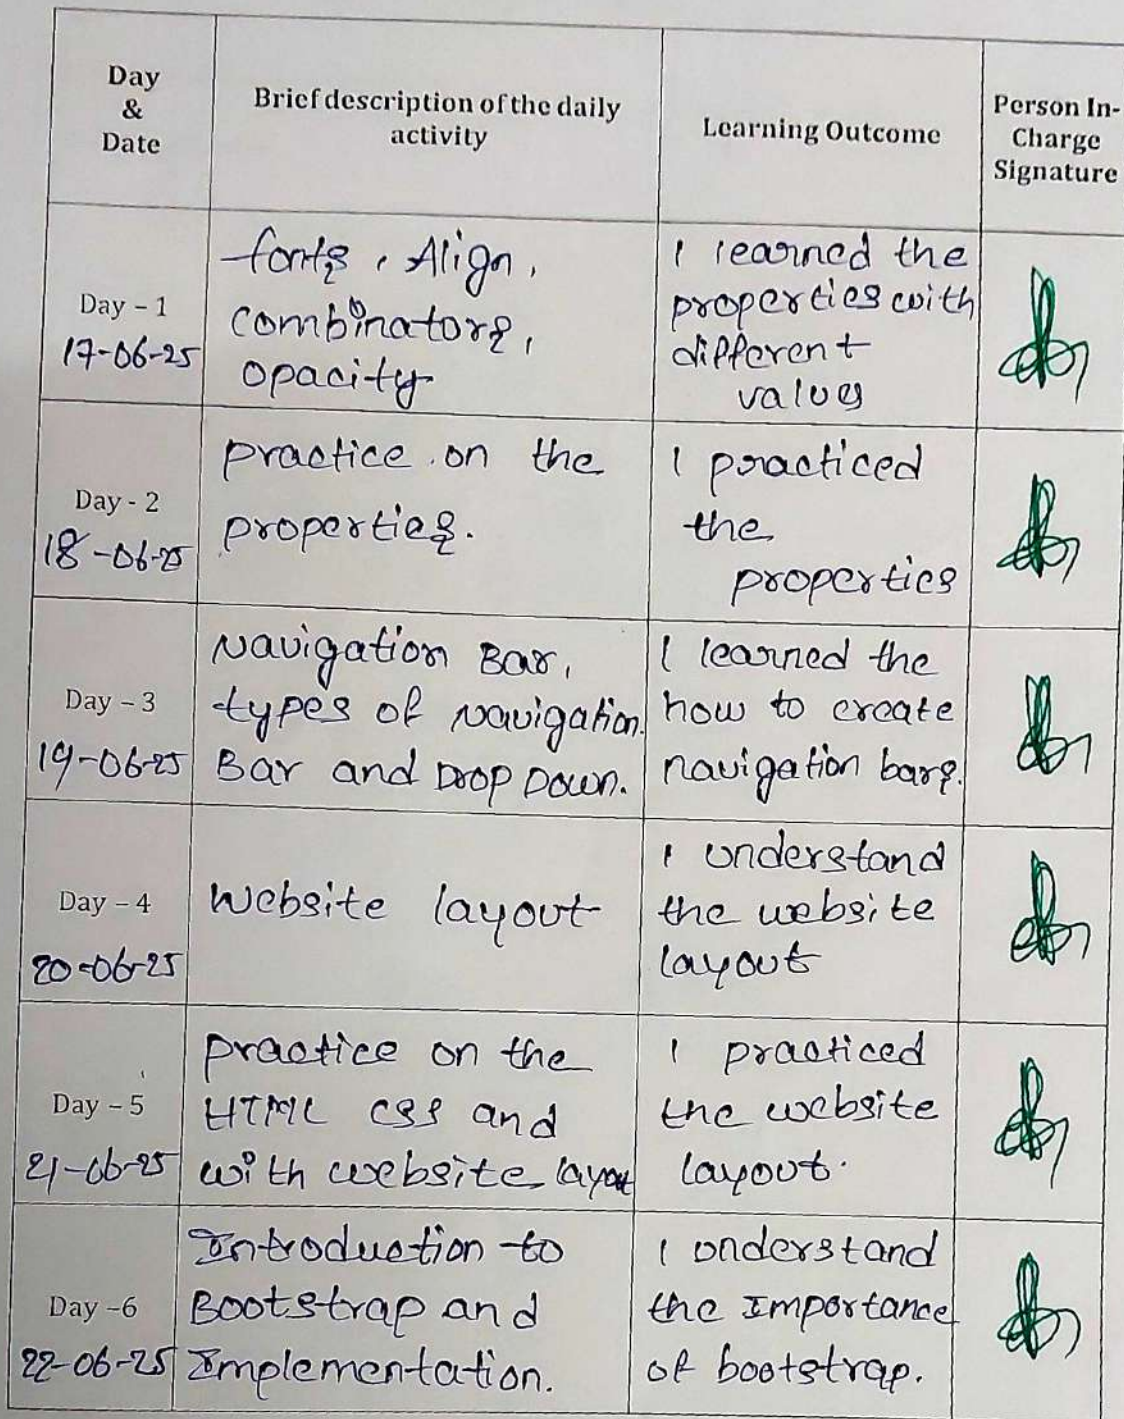 Day
&
Date
Brief description of the daily
activity
Learning Outcome
Person In-
Charge
Signature
Day – 1
17-06-25
fonts, Align,
combinators,
opacity
I learned the
properties with
different
values
Day - 2
18-06-25
practice on the
properties.
I practiced
the
properties
Day – 3
19-06-25
Navigation Bar,
types of navigation
Bar and Drop Down.
I learned the
how to create
navigation bars.
Day – 4
20-06-25
Website layout
I understand
the website
layout
Day – 5
21-06-25
practice on the
HTML CSS and
with website layout
I practiced
the website
layout.
Day –6
22-06-25
Introduction to
Bootstrap and
Implementation.
I understand
the Importance
of bootstrap.